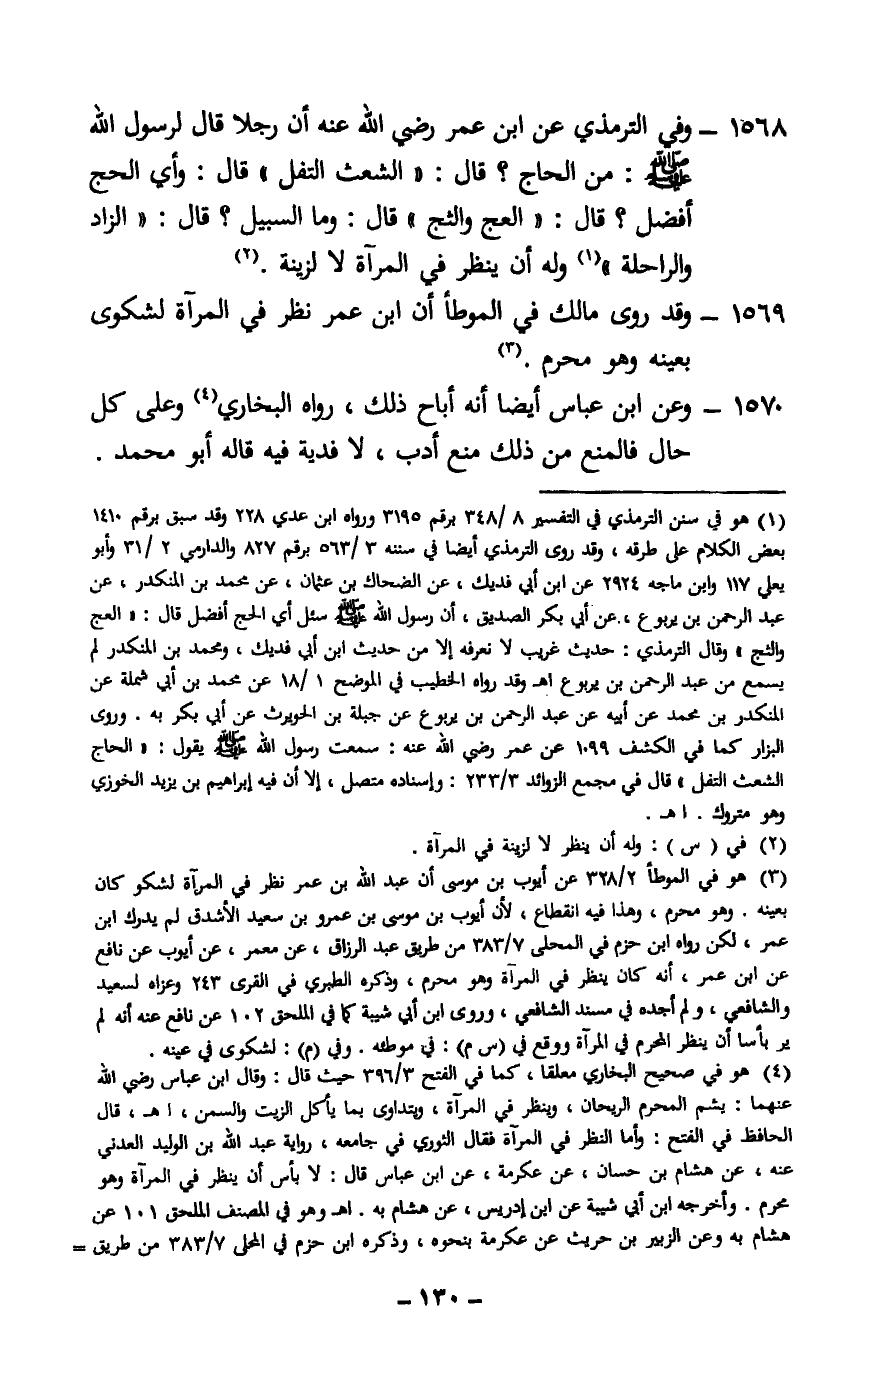 ١٥٦٨ ــ وفي الترمذي عن ابن عمر رضي الله عنه أن رجلا قال لرسول الله
ﷺ : من الحاج ؟ قال : « الشعث التفل » قال : وأي الحج
أفضل ؟ قال : « العج والثج » قال : وما السبيل ؟ قال : « الزاد
والراحلة »(١) وله أن ينظر في المرآة لا لزينة .(٢)
١٥٦٩ ــ وقد روى مالك في الموطأ أن ابن عمر نظر في المرآة لشكوى
بعينه وهو محرم .(٣)
١٥٧٠ ــ وعن ابن عباس أيضا أنه أباح ذلك ، رواه البخاري(٤) وعلى كل
حال فالمنع من ذلك منع أدب ، لا فدية فيه قاله أبو محمد .
(١) هو في سنن الترمذي في التفسير ٨ /٣٤٨ برقم ٣١٩٥ ورواه ابن عدي ٢٢٨ وقد سبق برقم ١٤١٠
بعض الكلام على طرقه ، وقد روى الترمذي أيضا في سننه ٣ /٥٦٣ برقم ٨٢٧ والدارمي ٢ /٣١ وأبو
يعلي ١١٧ وابن ماجه ٢٩٢٤ عن ابن أبي فديك ، عن الضحاك بن عثمان ، عن محمد بن المنكدر ، عن
عبد الرحمن بن يربوع ، عن أبي بكر الصديق ، أن رسول الله ﷺ سئل أي الحج أفضل قال : « العج
والثج » وقال الترمذي : حديث غريب لا نعرفه إلا من حديث ابن أبي فديك ، ومحمد بن المنكدر لم
يسمع من عبد الرحمن بن يربوع اهـ وقد رواه الخطيب في الموضح ١ /١٨ عن محمد بن أبي شملة عن
المنكدر بن محمد عن أبيه عن عبد الرحمن بن يربوع عن جبلة بن الحويرث عن أبي بكر به . وروى
البزار كما في الكشف ١٠٩٩ عن عمر رضي الله عنه : سمعت رسول الله ﷺ يقول : « الحاج
الشعث التفل » قال في مجمع الزوائد ٢٣٣/٣ : وإسناده متصل ، إلا أن فيه إبراهيم بن يزيد الخوزي
وهو متروك . ا هـ .
(٢) في ( س ) : وله أن ينظر لا لزينة في المرآة .
(٣) هو في الموطأ ٣٢٨/٢ عن أيوب بن موسى أن عبد الله بن عمر نظر في المرآة لشكو كان
بعينه . وهو محرم ، وهذا فيه انقطاع ، لأن أيوب بن موسى بن عمرو بن سعيد الأشدق لم يدرك ابن
عمر ، لكن رواه ابن حزم في المحلى ٣٨٣/٧ من طريق عبد الرزاق ، عن معمر ، عن أيوب عن نافع
عن ابن عمر ، أنه كان ينظر في المرآة وهو محرم ، وذكره الطبري في القرى ٢٤٣ وعزاه لسعيد
والشافعي ، ولم أجده في مسند الشافعي ، وروى ابن أبي شيبة كما في الملحق ١٠٢ عن نافع عنه أنه لم
ير بأسا أن ينظر المحرم في المرآة ووقع في (س م) : في موطئه . وفي (م) : لشكوى في عينه .
(٤) هو في صحيح البخاري معلقا ، كما في الفتح ٣٩٦/٣ حيث قال : وقال ابن عباس رضي الله
عنهما : يشم المحرم الريحان ، وينظر في المرآة ، ويتداوى بما يأكل الزيت والسمن ، ا هـ ، قال
الحافظ في الفتح : وأما النظر في المرآة فقال الثوري في جامعه ، رواية عبد الله بن الوليد العدني
عنه ، عن هشام بن حسان ، عن عكرمة ، عن ابن عباس قال : لا بأس أن ينظر في المرآة وهو
محرم . وأخرجه ابن أبي شيبة عن ابن إدريس ، عن هشام به . اهـ وهو في المصنف الملحق ١٠١ عن
هشام به وعن الزبير بن حريث عن عكرمة بنحوه ، وذكره ابن حزم في المحلى ٣٨٣/٧ من طريق =
ــ ١٣٠ ــ